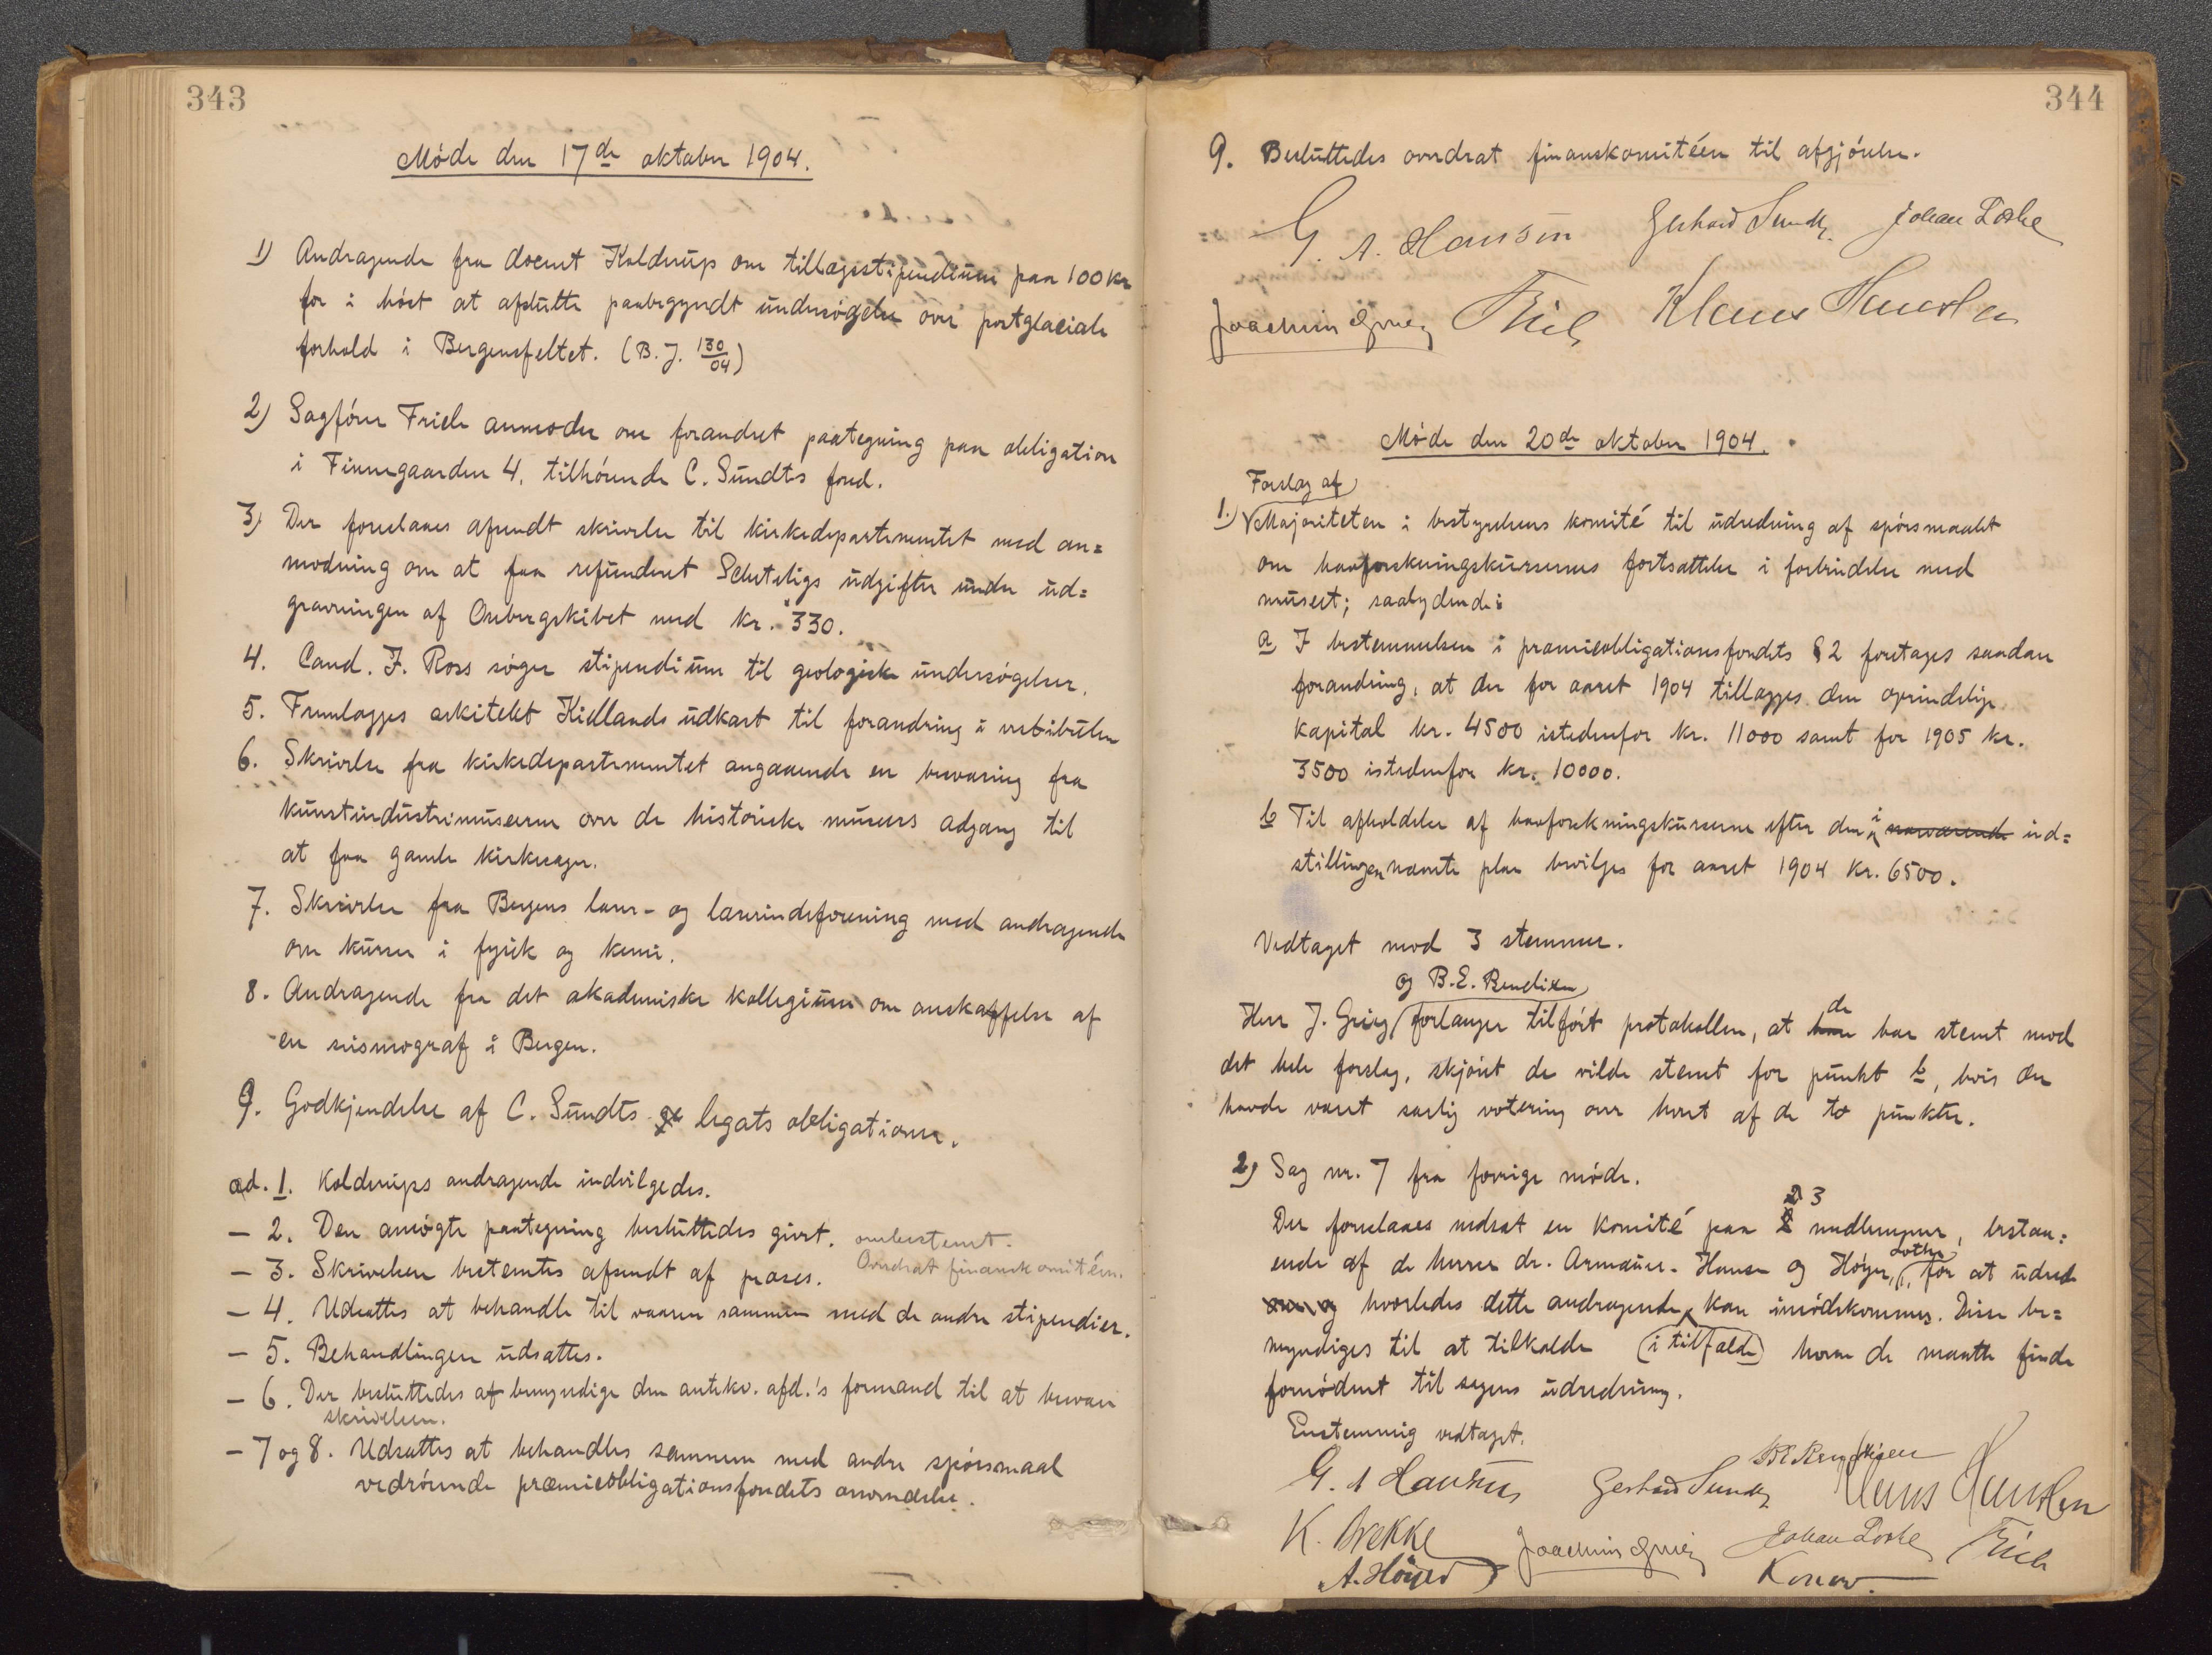 343
Møde den 17de oktober 1904.
1) Andragende fra docent Kolderup om tillægsstipendium paa 100 kr
for i høst at afslutte paabegyndt undersøgelse over postglaciale
forhold i Bergensfeltet. (B. J. 130/04)
2) Sagfører Friele anmoder om forandret paategning paa obligation
i Finnegaarden 4, tilhørende C. Sundts fond.
3) Der foreslaaes afsendt skrivelse til kirkedepartementet med an=
modning om at faa refunderet Scheteligs udgifter under ud=
gravningen af Osebergskibet med kr. 330.
4. Cand. F. Ross søger stipendium til geologiske undersøgelser.
5. Fremlægges arkitekt Kiellands udkast til forandring i vestibulen
6. Skrivelse fra kirkedepartementet angaaende en besvaring fra
kunstindustrimuseerne over de historiske museers adgang til
at faa gamle kirkesager.
7. Skrivelse fra Bergens lærer- og lærerindeforening med andragende
om kurser i fysik og kemi.
8. Andragende fra det akademiske kollegium om anskaffelse af
en seismograf i Bergen.
9. Godkjendelse af C. Sundts legats obligationer.
ad. 1. Kolderups andragende indvilgedes.
— 2. Den ansøgte paategning besluttedes givet. ombestemt.
Overdrat finanskomitéen.
— 3. Skrivelsen bestemtes afsendt af præses.
— 4. Udsattes at behandle til vaaren sammen med de andre stipendier.
— 5. Behandlingen udsattes.
— 6. Der besluttedes at bemyndige den antikv. afd.'s formand til at besvare
skrivelsen.
— 7 og 8. Udsattes at behandles sammen med andre spørsmaal
vedrørende præmieobligationsfondets anvendelse.
344
9. Besluttedes overdrat finanskomitéen til afgjørelse.
G. A. Hansen Gerhard Sundt Johan Lothe
Joachim Grieg Friele Klaus Hanssen
Møde den 20de oktober 1904.
Forslag af
1.) Majoriteten i bestyrelsens komité til udredning af spørsmaalet
om havforskningskursernes fortsættelse i forbindelse med
museet; saalydende:
a I bestemmelsen i præmieobligationsfondets § 2 foretages saadan
forandring, at der for aaret 1904 tillægges den oprindelige
kapital kr. 4500 istedenfor kr. 11000 samt for 1905 kr.
3500 istedenfor kr. 10000.
b Til afholdelse af havforskningskurserne efter den i nærværende ud=
stillingen nævnte plan bevilges for aaret 1904 kr. 6500.
Vedtaget mod 3 stemmer.
og B. E. Bendixen
Herr J. Grieg forlanger tilført protokollen, at han de har stemt mod
det hele forslag, skjønt de vilde stemt for punkt b, hvis der
havde været særlig votering over hvert af de to punkter.
2) Sag nr. 7 fra forrige møde.
Der foreslaaes nedsat en komité paa 3 medlemmer, bestaa=
ende af de herrer dr. Armauer-Hansen og Høyer, Lothe for at udrede
om og hvorledes dette andragende kan imødekommes. Disse be=
myndiges til at tilkalde (i tilfælde) hvem de maatte finde
fornødent til sagens udredning.
Enstemmig vedtaget.
G. A. Hansen Gerhard Sundt B E Bendixen Klaus Hanssen
K. Brekke Joachim Grieg Johan Lothe Friele
A. Höyer Konow.